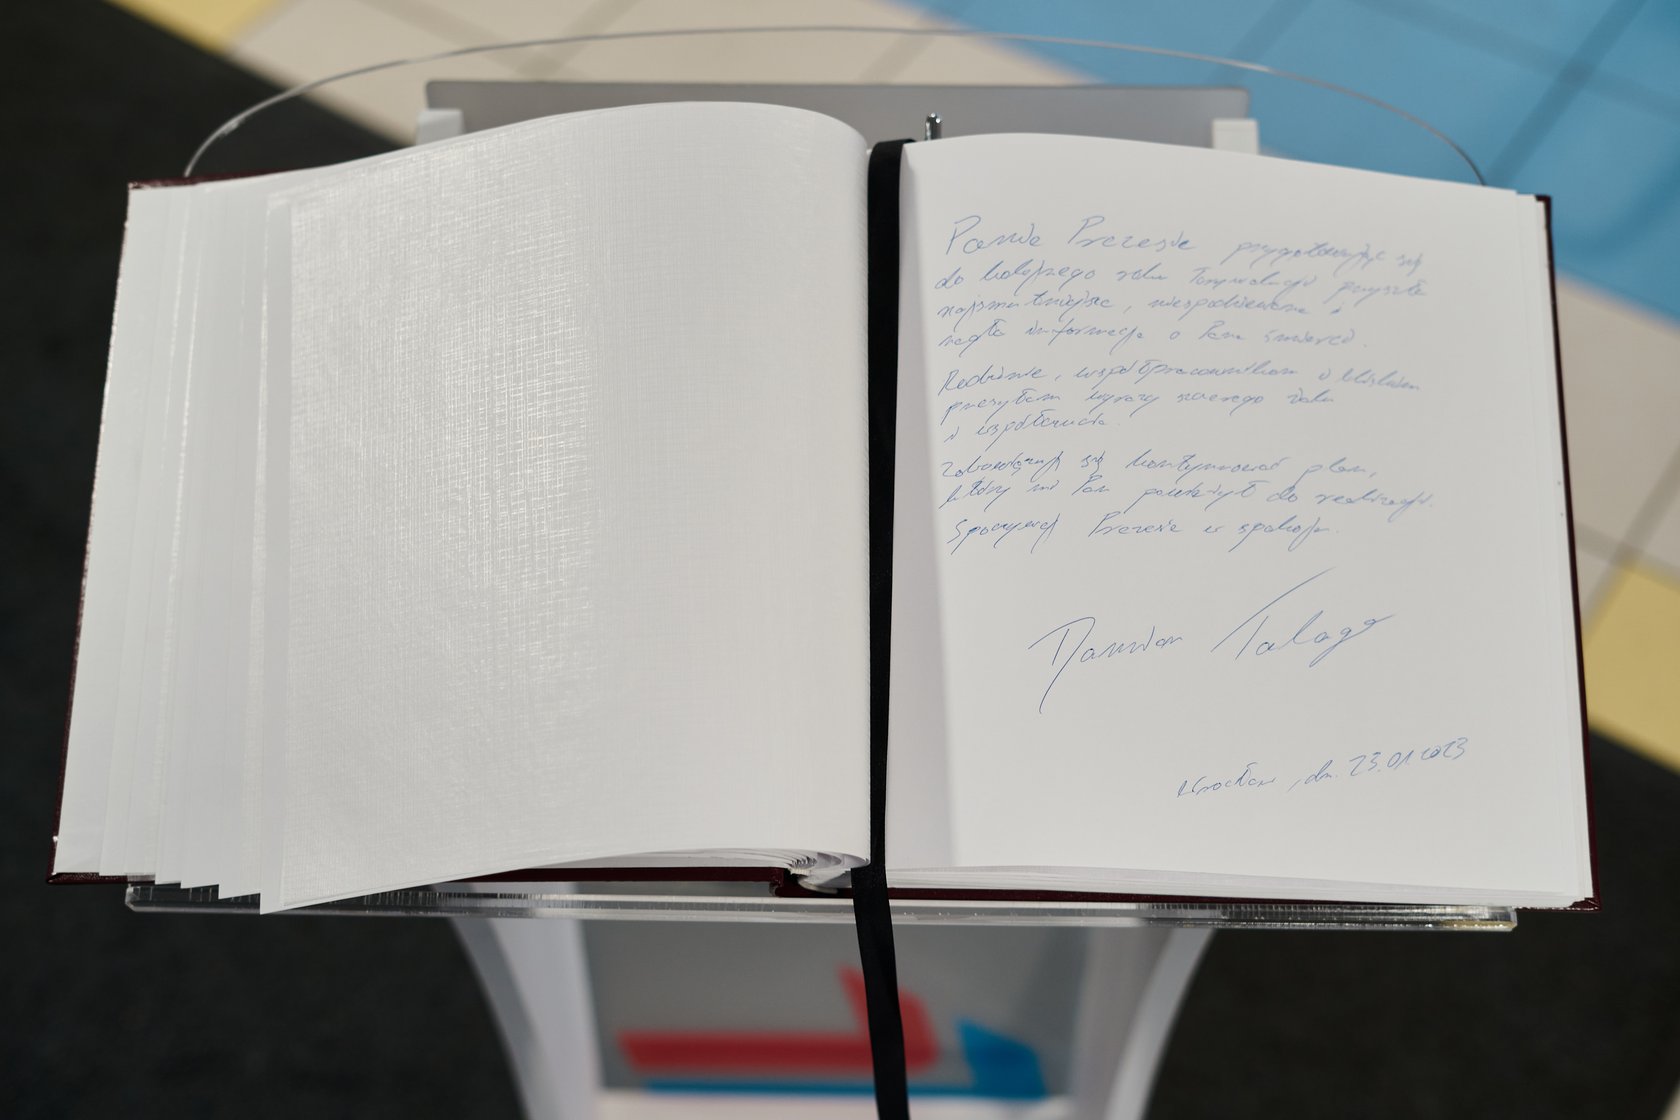 Panie Prezesie przygotowując się
do kolejnego roku Transplantacji przyszła
najsmutniejsza, niespodziewana i
nagła informacja o Pana śmierci.
Rodzinie, współpracownikom i bliskim
przesyłam wyrazy szczerego żalu
i współczucia.
Zobowiązuję się kontynuować plan,
który mi Pan powierzył do realizacji.
Spoczywaj Prezesie w spokoju.
Damian Talaga
Wrocław, dn. 23.01.2023